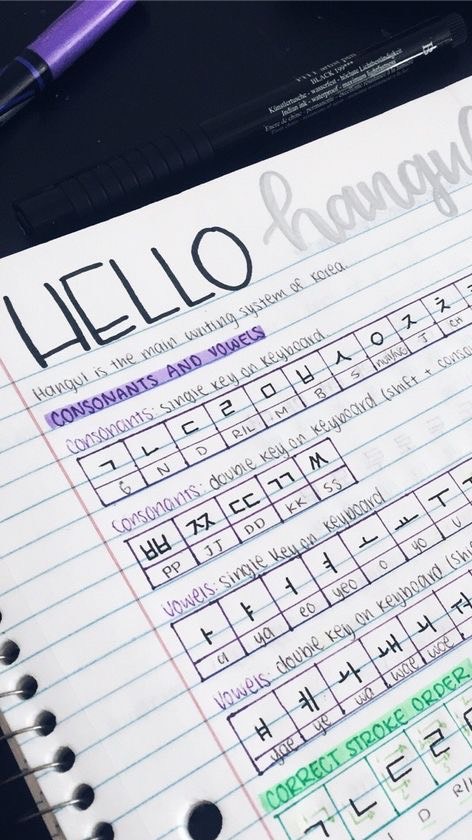 B
BLACK 199***
Künstlertusche - wasserfest - höchste Lichtbeständigkeit
Indian ink - waterproof - maximum lightfastness
Encre de chine - permanente -
HELLO hangul
Hangul is the main writing system of Korea.
CONSONANTS AND VOWELS
consonants: single key on keyboard
ㄱ ㄴ ㄷ ㄹ ㅁ ㅂ ㅅ ㅇ ㅈ ㅊ
G N D R/L M B S J CH
consonants: double key on keyboard (shift + conso
ㅃ ㅉ ㄸ ㄲ ㅆ
PP JJ DD KK SS
vowels: single key on keyboard
ㅏ ㅑ ㅓ ㅕ ㅗ ㅛ ㅜ
a ya eo yeo o yo u
vowels: double key on keyboard (shi
ㅒ ㅖ ㅘ ㅙ
yae ye wa wae woe
CORRECT STROKE ORDER
ㄱ ㄴ ㄷ ㄹ
D R/